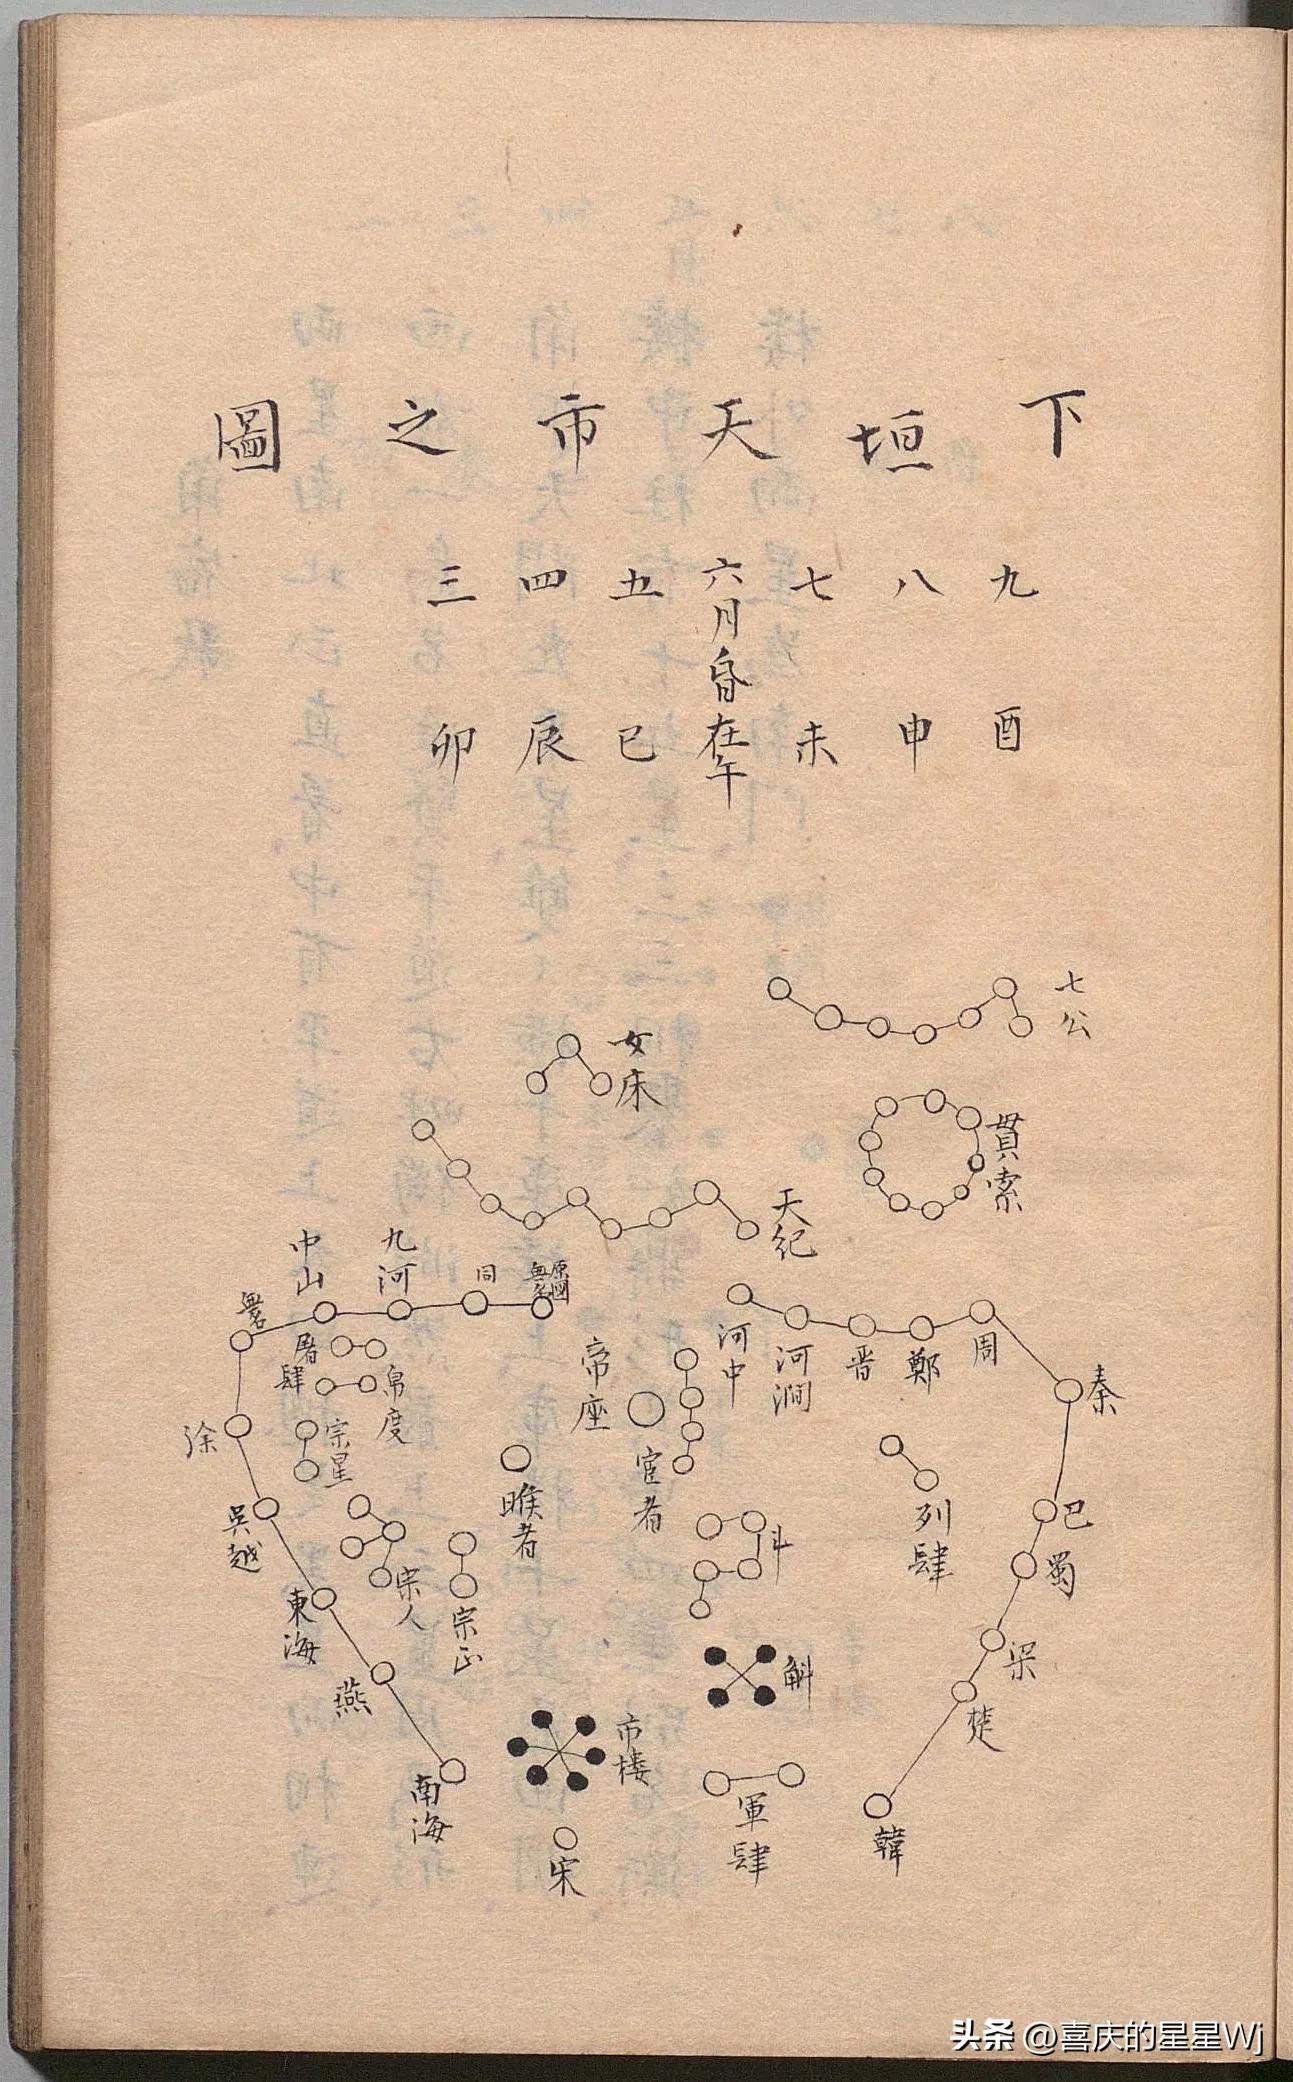 下垣天市之圖
九 八 七 六月昏在午 五 四 三
酉 申 未 巳 辰 卯
七公
女床
貫索
天紀
中山
九河
同
原圖無名
無名
河中
河澗
晋
鄭
周
秦
屠肆
帛度
帝座
徐
宗星
宦者
睺者
列肆
巴
吳越
斗
蜀
宗人
宗正
東海
梁
斛
燕
楚
市楼
南海
軍肆
韓
宋
头条 @喜庆的星星Wj